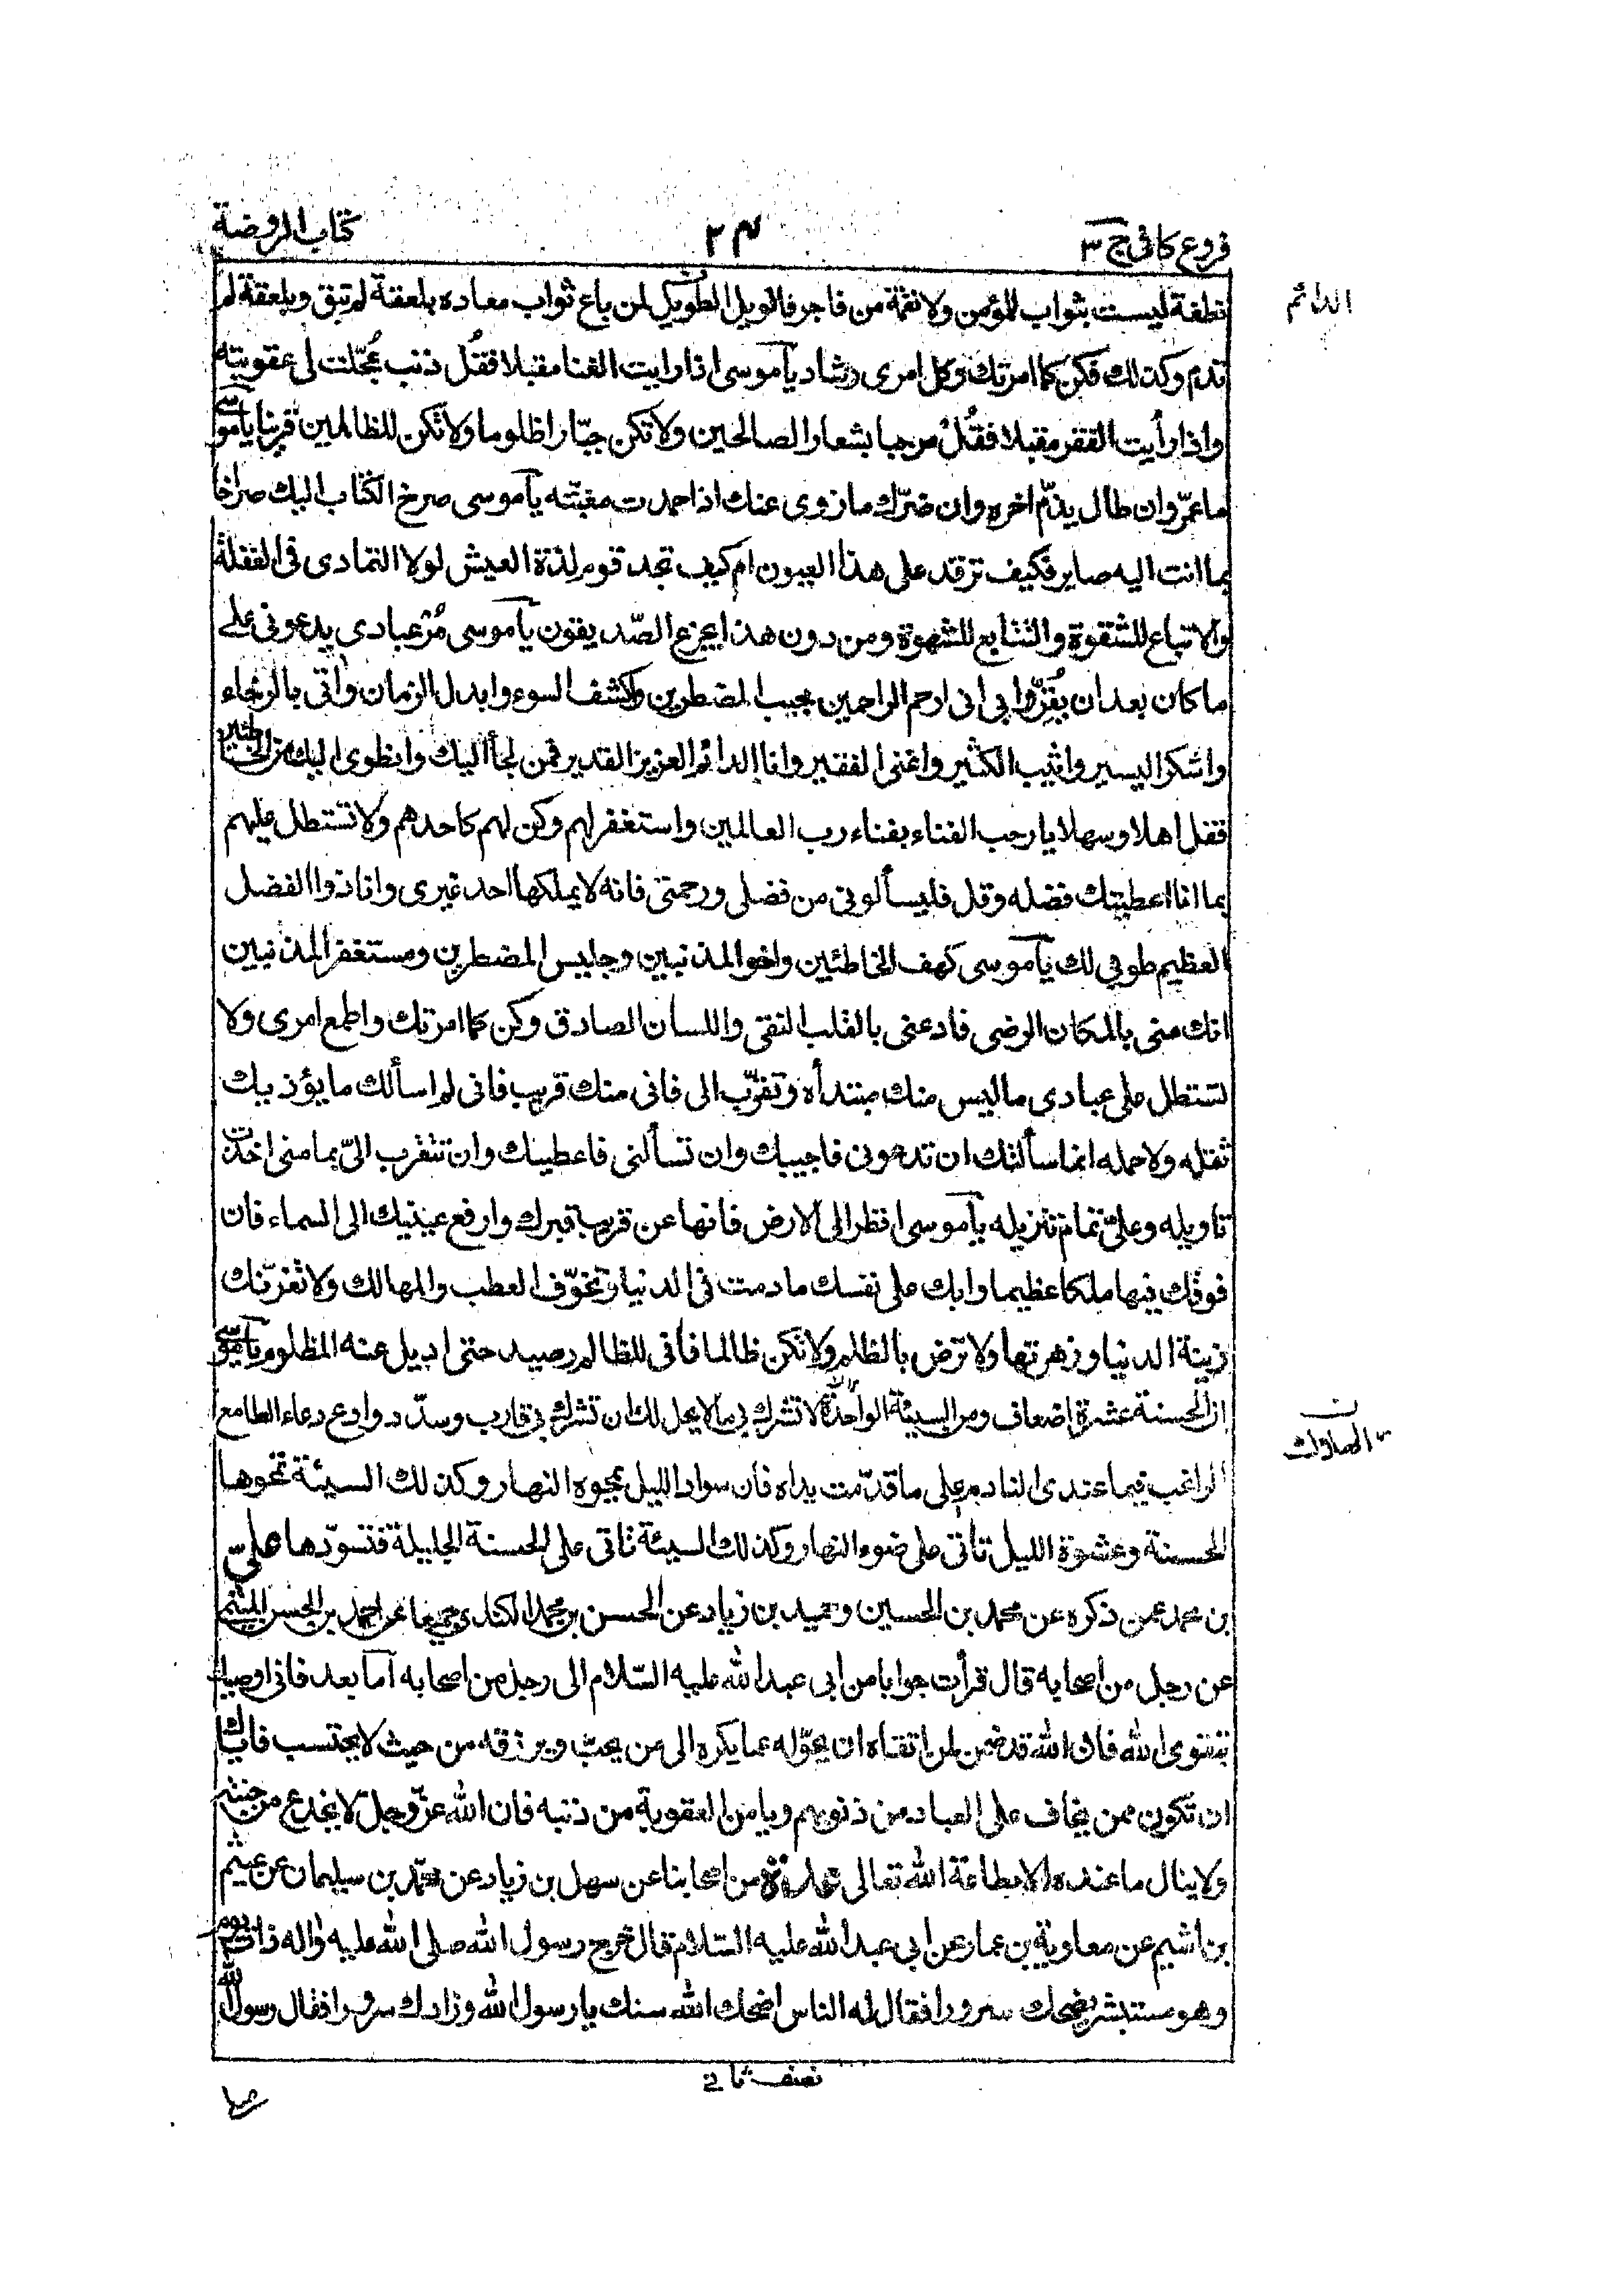 فروع كافى ج ٣
٢٤
كتاب الروضة
الدائم
نطفة ليست بثواب للمؤمن ولا نقمة من فاجر فالويل الطويل لمن باع ثواب معاده بلعقة لم تبق وبلعقة لم
تدم وكذلك فكن كما امرتك وكل امرى رشاد يا موسى اذا رايت الغنا مقبلا فقُل ذنب عُجّلت لى عقوبته
واذا رأيت الفقر مقبلا فقُلْ مرحبا بشعار الصالحين ولا تكن جبّارا ظلوما ولا تكن للظالمين قرينا يا موسى
ما عمّر وان طال يذمّ اخره وان ضرّك ما زوى عنك اذا حمدت مغبّته يا موسى صرخ الكتاب اليك صراخا
بما انت اليه صاير فكيف ترقد على هذا العيون ام كيف تجد قوم لذة العيش لولا التمادى فى الغفلة
والاتباع للشقوة والتتابع للشهوة ومن دون هذا يجزع الصّديقون يا موسى مُرْ عبادى يدعونى على
ما كان بعد ان يُقِرّوا بى انى ارحم الراحمين مجيب المضطرين واكشف السوء وابدل الزمان واتى بالرخاء
واشكر اليسير واثيب الكثير واغنى الفقير وانا الدائم العزيز القدير فمن لجأ اليك وانطوى اليك من الخاطئين
فقل اهلا وسهلا يا رحب الفناء بفناء رب العالمين واستغفر لهم وكن لهم كاحدهم ولا تستطل عليهم
بما انا اعطيتك فضله وقل فليسألونى من فضلى ورحمتى فانه لا يملكها احد غيرى وانا ذوا الفضل
العظيم طوبى لك يا موسى كهف الخاطئين واخو المذنبين وجليس المضطرين ومستغفر المذنبين
انك منى بالمكان الرضى فادعنى بالقلب النقى واللسان الصادق وكن كما امرتك واطع امرى ولا
تستطل على عبادى ما ليس منك مبتدأه وتقرّب الى فانى منك قريب فانى لم اسألك ما يؤذيك
ثقله ولا حمله انما سألتك ان تدعونى فاجيبك وان تسألنى فاعطيك وان تتقرب الىّ بما منى اخذت
تاويله وعلىّ تمام تنزيله يا موسى انظر الى الارض فانها عن قريب قبرك وارفع عينيك الى السماء فان
فوقك فيها ملكا عظيما وابك على نفسك ما دمت فى الدنيا وتخوّف العطب والمهالك ولا تغرّنك
زينة الدنيا وزهرتها ولا ترض بالظلم ولا تكن ظالما فانى للظالم رصيد حتى اديل عنه المظلوم يا موسى
ان الحسنة عشرة اضعاف ومن السيئة الواحدة لا تشرك بى ما لا يحل لك ان تشرك بى قارب وسدّد وادع دعاء الطامع
الراغب فيما عندى النادم على ما قدّمت يداه فان سواد الليل يمحوه النهار وكذلك السيئة تمحوها
الحسنة وعشوة الليل تاتى على ضوء النهار وكذلك السيئة تاتى على الحسنة الجليلة فتسوّدها علىّ
بن محمد عمن ذكره عن محمد بن الحسين وحميد بن زياد عن الحسن بن محمد الكندى جميعا عن احمد بن الحسن الميثمى
عن رجل من اصحابه قال قرأت جوابا من ابى عبد الله عليه السّلام الى رجل من اصحابه اما بعد فانى اوصيك
بتقوى الله فان الله قد ضمن لمن اتقاه ان يحوّله عما يكره الى من يحبّ ويرزقه من حيث لا يحتسب فاياك
ان تكون ممن يخاف على العباد من ذنوبهم ويامن العقوبة من ذنبه فان الله عزّ وجل لا يخدع من جنته
ولا ينال ما عنده الا بطاعة الله تعالى عدة من اصحابنا عن سهل بن زياد عن محمّد بن سليمان عن عيثم
بن اشيم عن معاوية بن عمار عن ابى عبد الله عليه السّلام قال خرج رسول الله صلى الله عليه واله ذات يوم
وهو مستبشر يضحك سرورا فقال له الناس اضحك الله سنك يا رسول الله وزادك سرورا فقال رسول الله